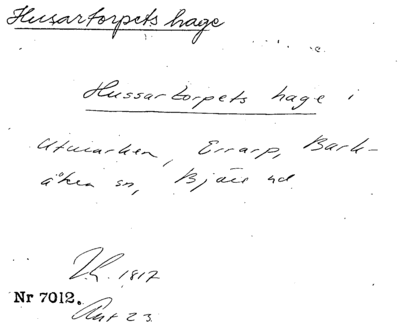 Husartorpets hage
Hussartorpets hage i
Utmarken, Errarp, Bark-
åkra sn, Bjäre hd
1817
Nr 7012.
23